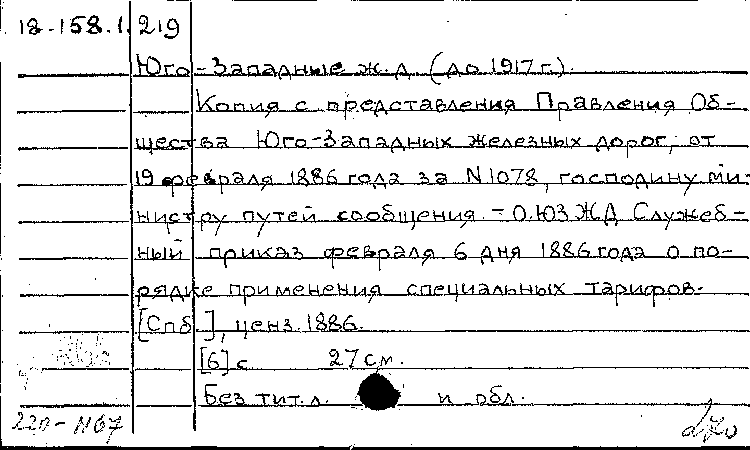 18-158.1.219
Юго-Западные ж.д. (до 1917 г.).
Копия с представления Правления Об-
щества Юго-Западных железных дорог, от
19 февраля 1886 года за N1078, господину ми-
нистру путей сообщения. - О.ЮЗЖД Служеб-
ный приказ февраля 6 дня 1886 года о по-
рядке применения специальных тарифов.
[Спб.], ценз. 1886.
[6] с. 27 см.
Без тит. л. и обл.
220-1167
270